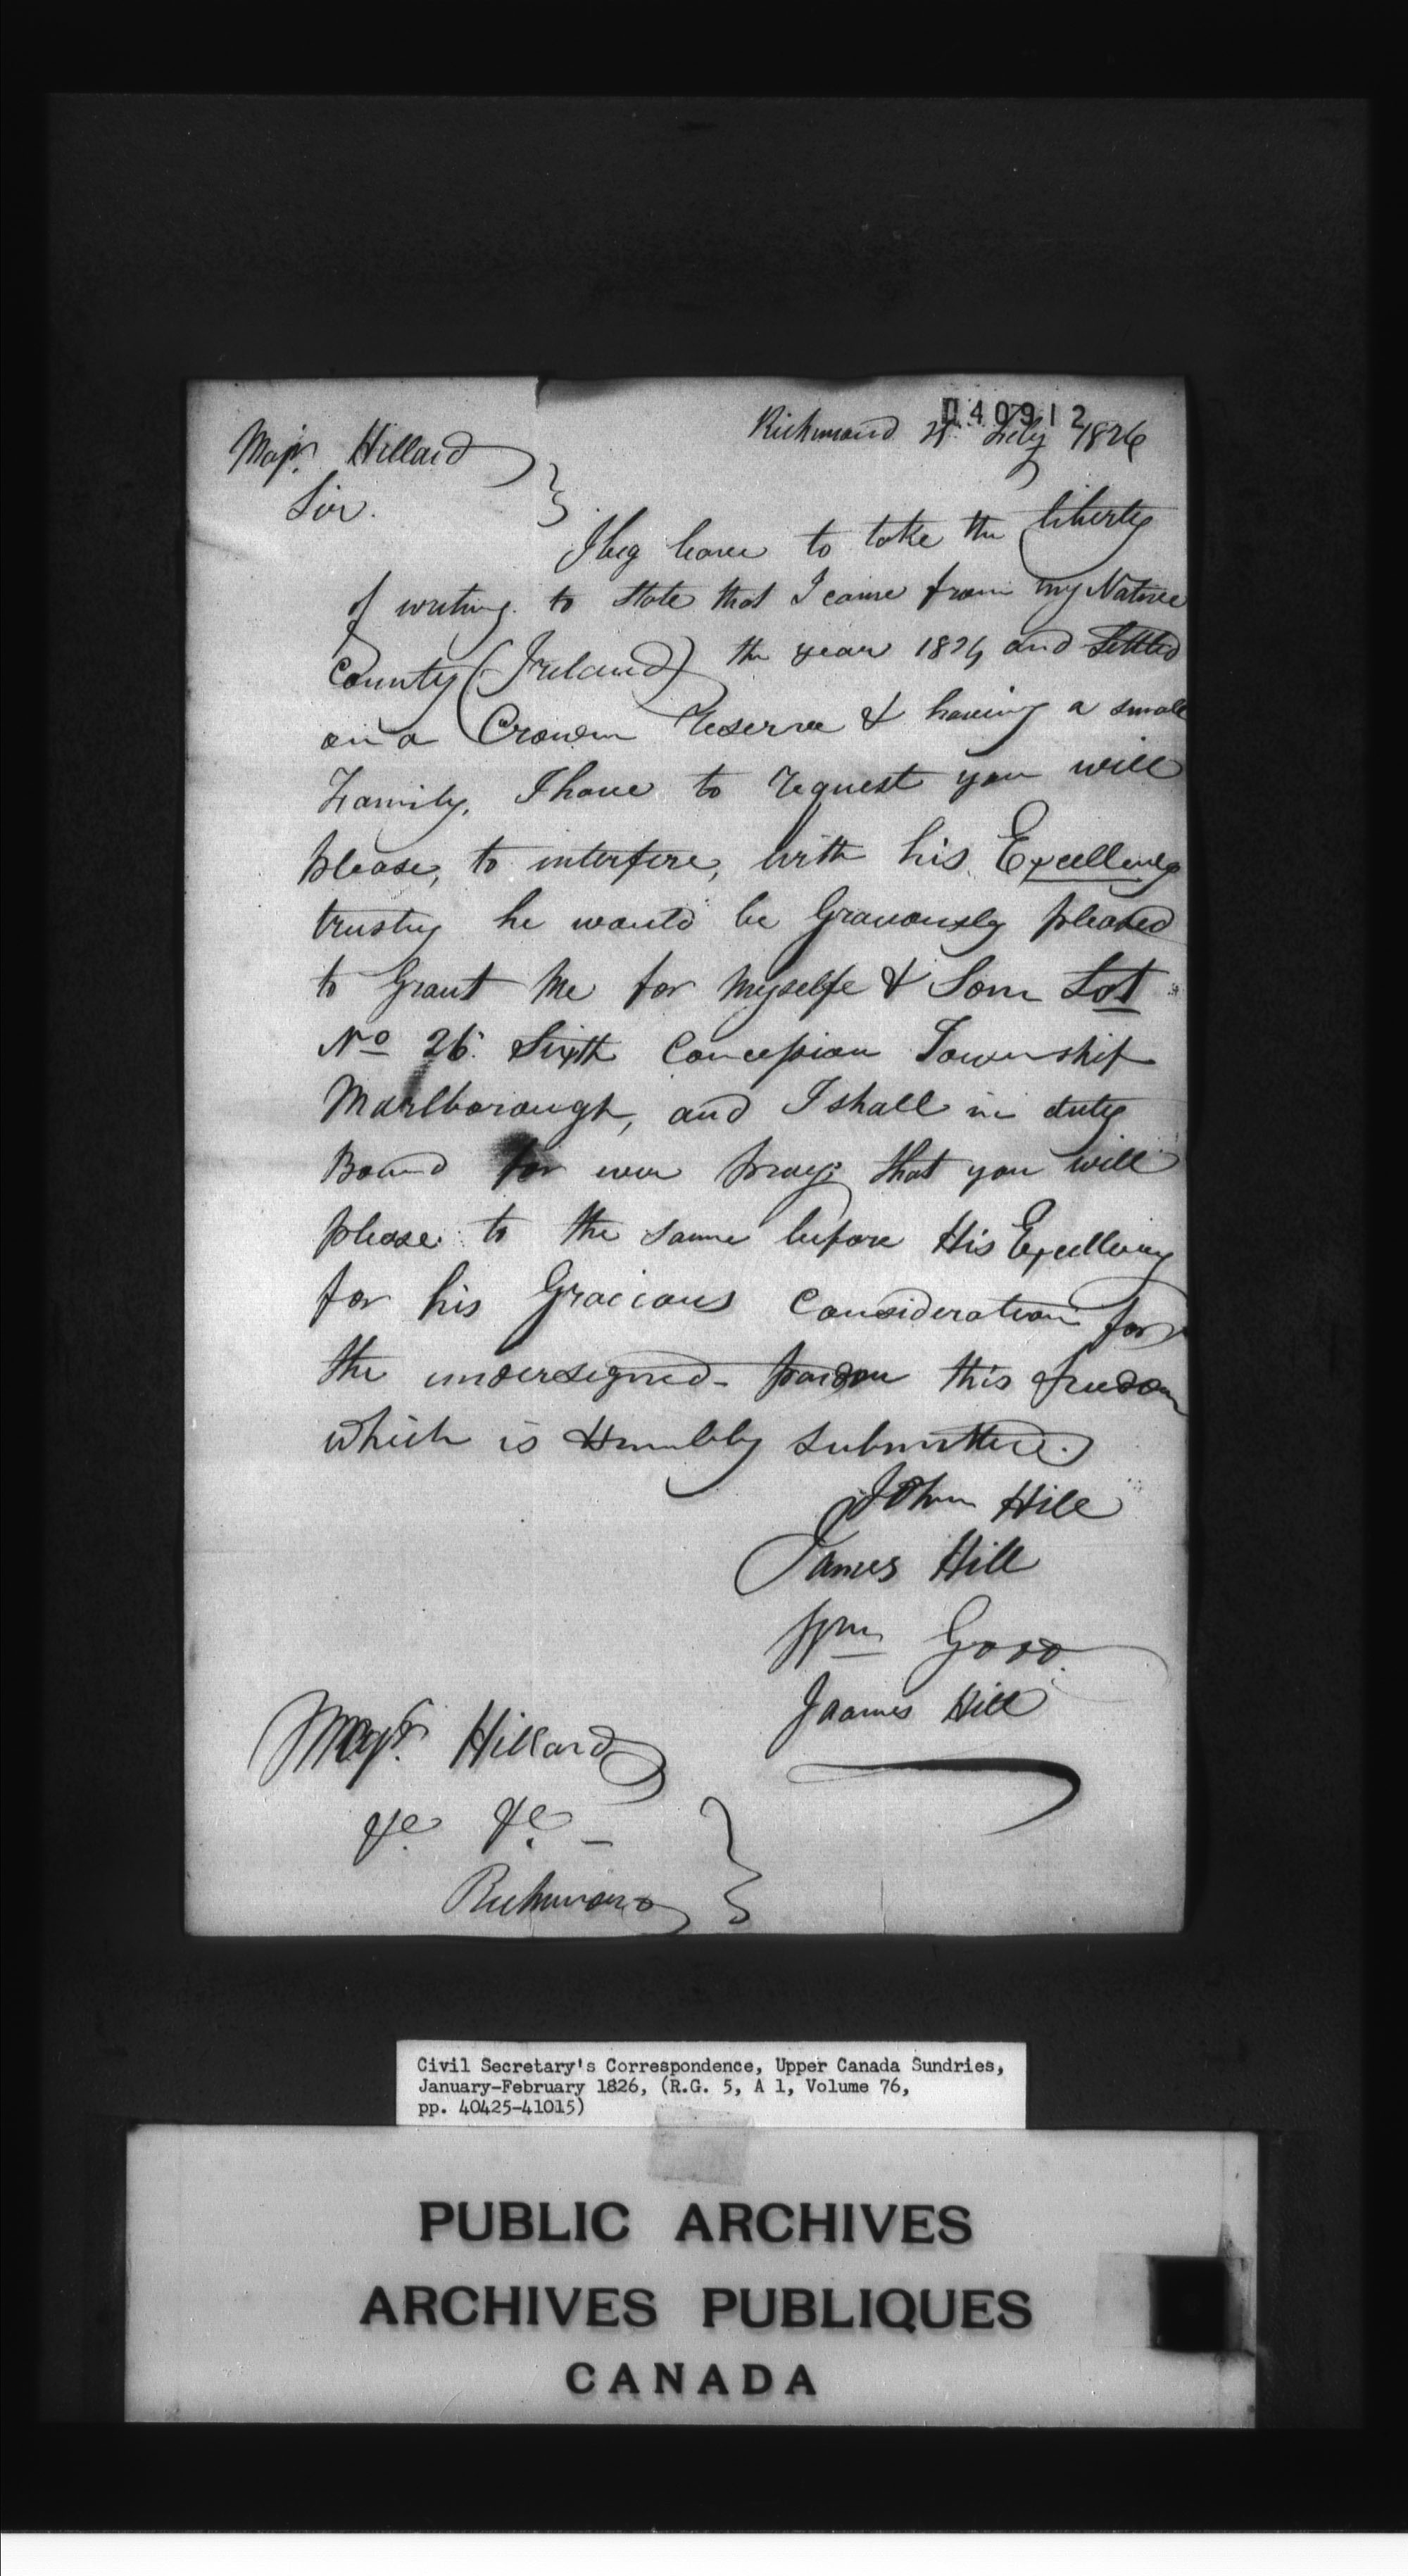 040912
Richmond 4th Feby 1826
Majr. Hillard
Sir.
I beg leave to take the liberty
of writing to state that I came from my Native
County (Ireland) the year 1824 and Settled
on a Crown Reserve & having a small
Family, I have to request you will
please, to interfere, with his Excellency
trusting he would be Graciously pleased
to Grant Me for Myselfe & Son Lot
No 26 Sixth Concession Township
Marlborough, and I shall in duty
Bound for ever pray that you will
please to the same before His Excellency
for his Gracious Consideration for
the undersigned - pardon this freedom
which is Humbly Submitted.
John Hill
James Hill
Wm Good
Jaames Hill
Majr. Hillard
&c &c -
Richmond
Civil Secretary's Correspondence, Upper Canada Sundries,
January-February 1826, (R.G. 5, A 1, Volume 76,
pp. 40425-41015)
PUBLIC ARCHIVES
ARCHIVES PUBLIQUES
CANADA